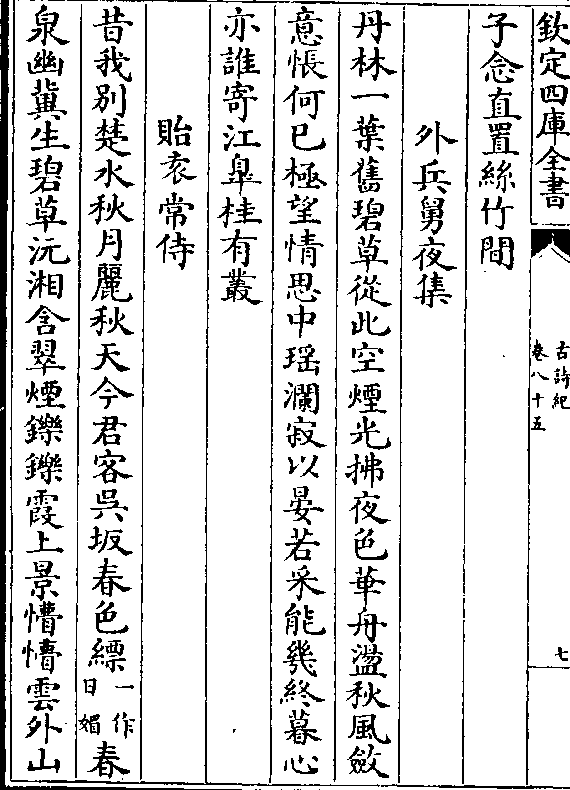 欽定四庫全書
古詩紀
卷八十五
七
子念直置絲竹間
外兵舅夜集
丹林一葉舊碧草從此空煙光拂夜色華舟盪秋風斂
意悵何已極望情思中瑶瀾寂以晏若采能幾終暮心
亦誰寄江臯桂有叢
貽袁常侍
昔我別楚水秋月麗秋天今君客吳坂春色縹一作日媚春
泉幽冀生碧草沅湘含翠煙鑠鑠霞上景懵懵雲外山